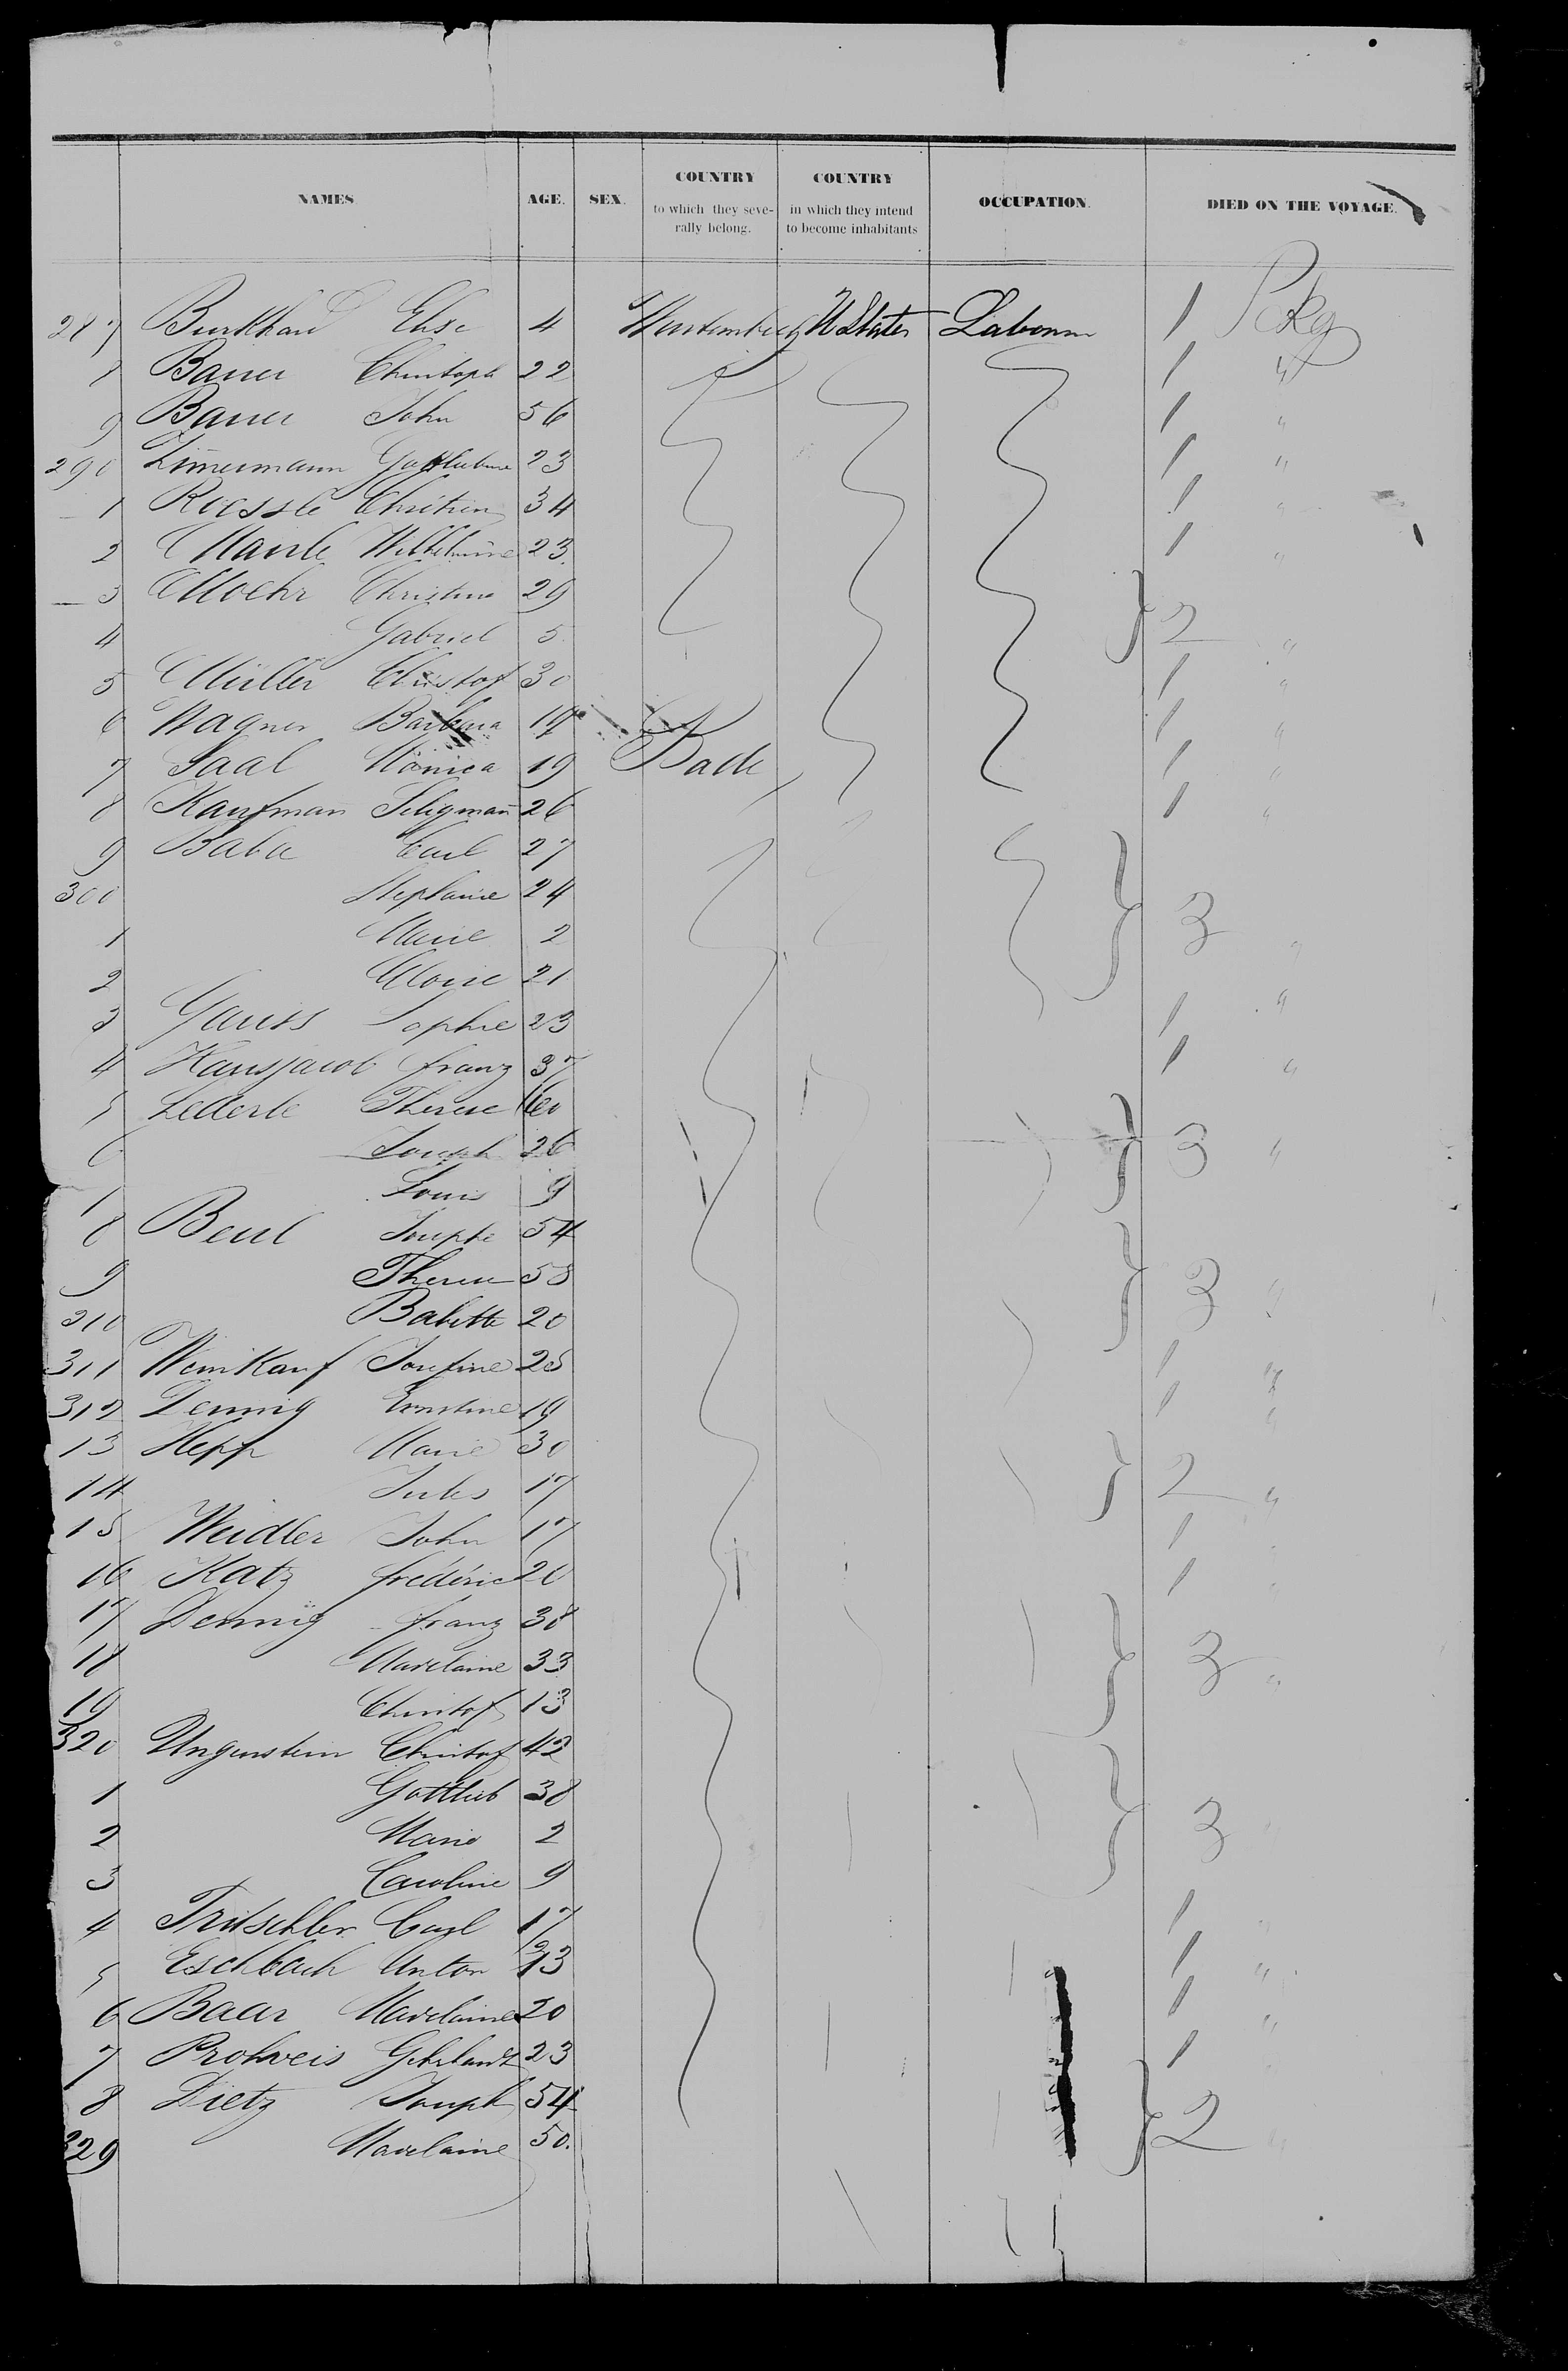 NAMES AGE. SEX. COUNTRY to which they severally belong. COUNTRY in which they intend to become inhabitants OCCUPATION. DIED ON THE VOYAGE.
287 Burkhard Elise 4 Wurtemberg U States Labourer 1 Pckg
8 Bauer Christoph 22 1 "
9 Bauer John 56 1 "
290 Zim̄ermann Gottliebine 23 1 "
1 Roessle Chrétien 34 1 "
2 Maile Wilhelmine 23. 1 "
3 Moehr Christine 29
4 Gabriel 5 2 "
5 Müller Christof 30 1 "
6 Wagner Barbara 19 1 "
7 Saal Monica 19 Bade 1 "
8 Kaufman Seligmañ 26 1 "
9 Baba Carl 27
300 Stephanie 24 3
1 Marie 2 "
2 Aloise 21
3 Gauss Sophie 23 1 "
4 Hansjacob franz 37 1 "
5 Lederle Therese 60
6 Joseph 26 3 "
7 Louis 9
8 Beul Josephe 54
9 Therese 58 3 "
310 Babette 20
311 Weinkauf Josefine 25 1 "
312 Dennig Ernstine 19 1 "
13 Hepp Marie 30
14 Jules 17 2 "
15 Weidler John 17 1
16 Katz frédéric 20 1
17 Dennig franz 38
18 Madelaine 33 3 "
19 Christof 13
320 Ungerstein Christof 42
1 Gottlieb 38
2 Marie 2 3 "
3 Caroline 9
4 Tritschler Carl 17 1 "
5 Eschbach Anton 23 1 "
6 Baar Madelaine 20 1 "
7 Prohveis 23 1
8 Dietz Joseph 54
329 Madelaine 50. 2 "